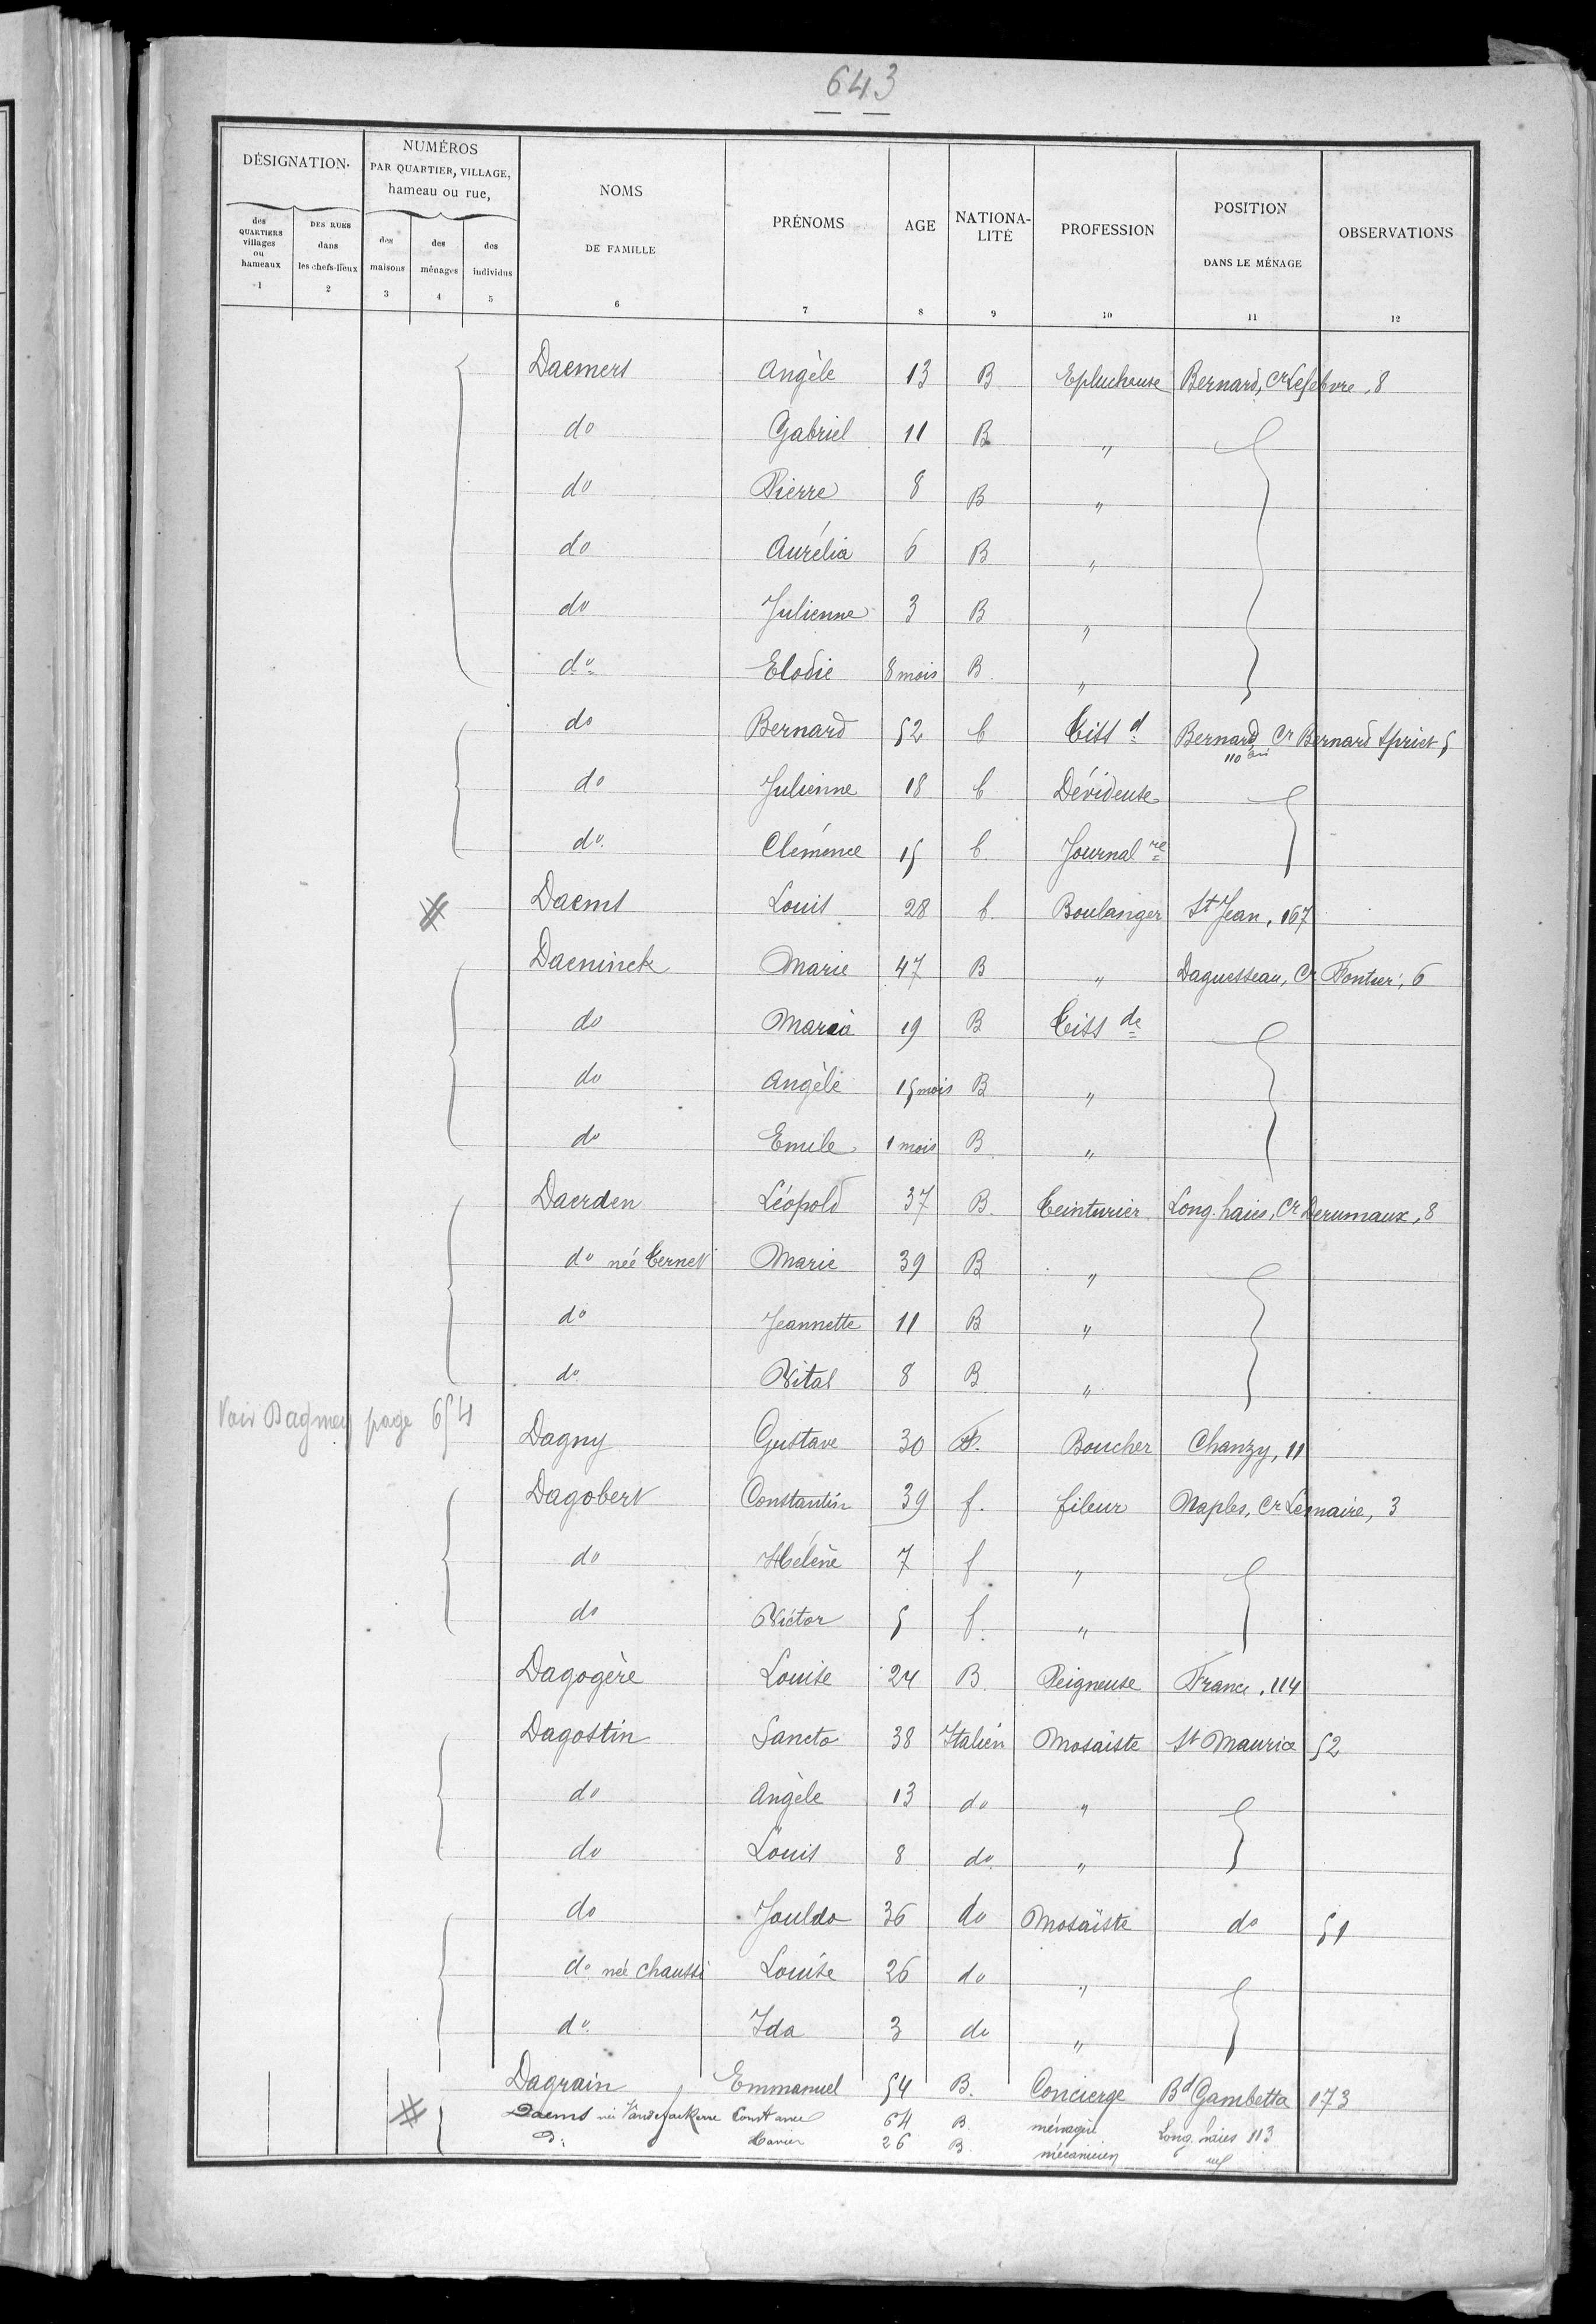 643
DÉSIGNATION NUMÉROS PAR QUARTIER, VILLAGE, hameau ou rue, NOMS DE FAMILLE PRÉNOMS AGE NATIONALITÉ PROFESSION POSITION DANS LE MÉNAGE OBSERVATIONS
des QUARTIERS villages ou hameaux DES RUES dans les chefs-lieux des maisons des ménages des individus
1 2 3 4 5 6 7 8 9 10 11 12
Daemers Angèle 13 B Eplucheuse Bernard, Cr Lefebvre, 8
do Gabriel 11 B "
do Pierre 8 B "
do Aurélia 6 B "
do Julienne 3 B "
do Elodie 8 mois B "
do Bernard 52 b Tissd Bernard, Cr Bernard Spriet 5
110
do Julienne 18 b Dévideuse
do Clémence 15 b Journalre
# Daems Louis 28 b Boulanger St Jean, 167
Daeninck Marie 47 B " Daguesseau, Cr Fontier, 6
do Maria 19 B Tissde
do Angèle 15 mois B "
do Emile 1 mois B "
Daerden Léopold 37 B Teinturier Long. haies, Cr Derumaux, 8
do née Ternet Marie 39 B "
do Jeannette 11 B "
do Vital 8 B "
Voir Dagmey page 654
Dagny Gustave 30 F. Boucher Chanzy, 11
Dagobert Constantin 39 f. fileur Naples, Cr Lemaire, 3
do Hélène 7 f "
do Victor 5 f. "
Dagogère Louise 24 B Peigneuse France, 114
Dagostin Sancto 38 Italien Mosaiste St Maurice 52
do Angèle 13 do "
do Louis 8 do "
do Jouldo 36 do Mosaïste do 51
do née Chaussi Louise 26 do "
do Ida 3 do "
Dagrain Emmanuel 54 B. Concierge Bd Gambetta 173
# Daems née Constance 64 B ménagère Long. haies 113
do Xavier 26 B. mécanicien